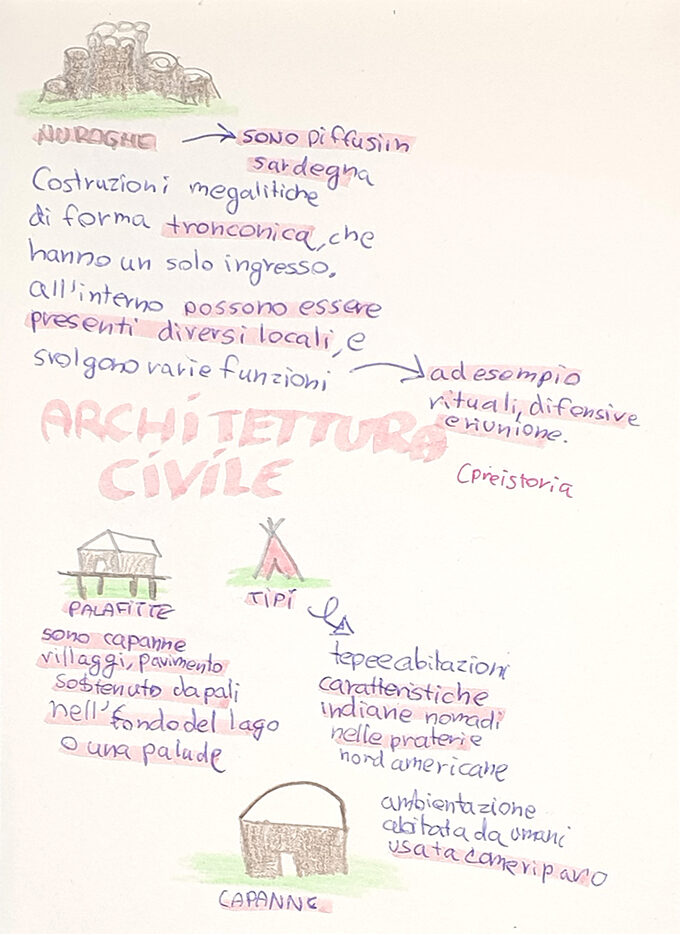 NURAGHE → sono diffusi in
sardegna
Costruzioni megalitiche
di forma tronconica, che
hanno un solo ingresso,
all'interno possono essere
presenti diversi locali, e
svolgono varie funzioni
ad esempio
rituali, difensive
e riunione.
ARCHITETTURA
CIVILE
(preistoria
PALAFITTE
sono capanne
villaggi, pavimento
sostenuto da pali
nell'fondo del lago
o una palude
TIPI
tepee abitazioni
caratteristiche
indiane nomadi
nelle praterie
nord americane
CAPANNE
ambientazione
abitata da umani
usata come riparo